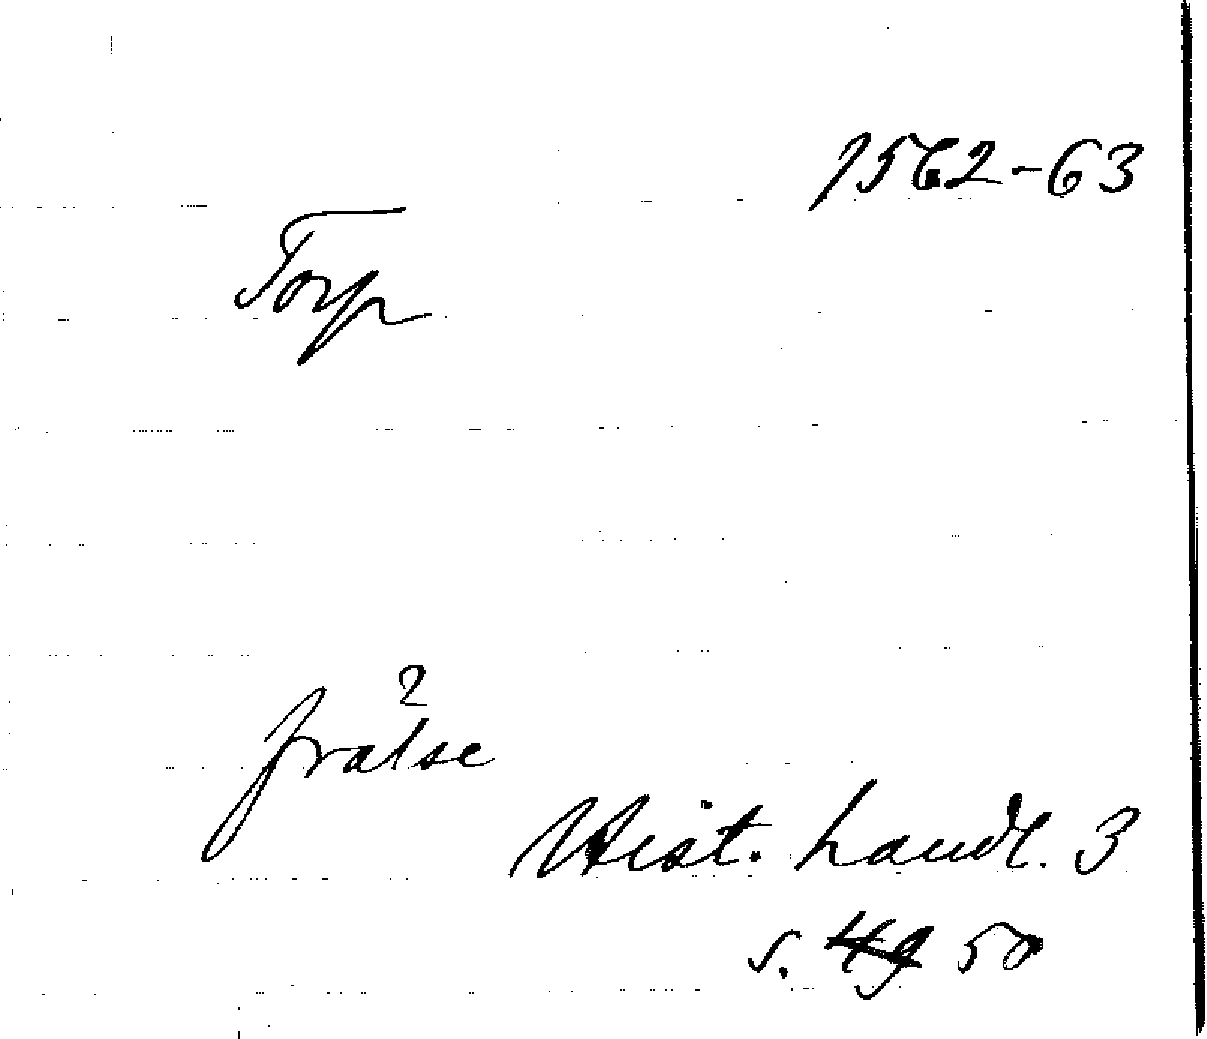 1562-63
Torp
2
frälse
Hist. handl. 3
s. 49 50